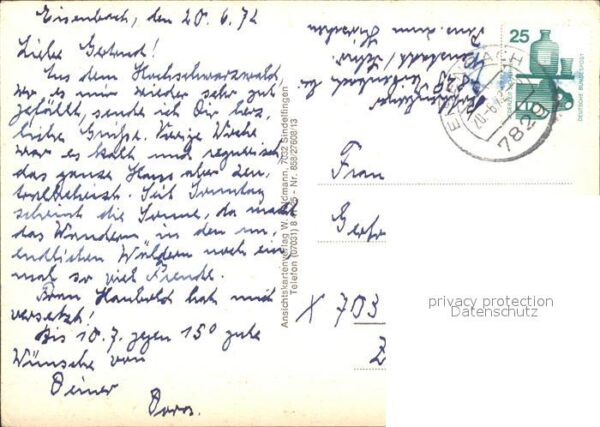 Eisenbach, den 20.6.72
Liebe Gertrud!
Aus dem Hochschwarzwald,
wo es mir wieder sehr gut
gefällt, sende ich Dir herz-
liche Grüße. Vorige Woche
war es kalt und regnerisch,
das ganze Haus aber zen-
tralbeheizt. Seit Sonntag
scheint die Sonne, da macht
das Wandern in den un-
endlichen Wäldern noch ein-
mal so viel Freude.
Frau Haubold hat mich
versetzt!
Bis 10.7. gegen 15° gute
Wünsche von
Deiner
Doros.
Ansichtskartenverlag W. 7032 Sindelfingen
Telefon (07031) 8 Nr. 868/27608/13
Pens. zum Hirschen
25
DEUTSCHE BUNDESPOST
20.-6.72
7829
Frau
X 703
privacy protection
Datenschutz